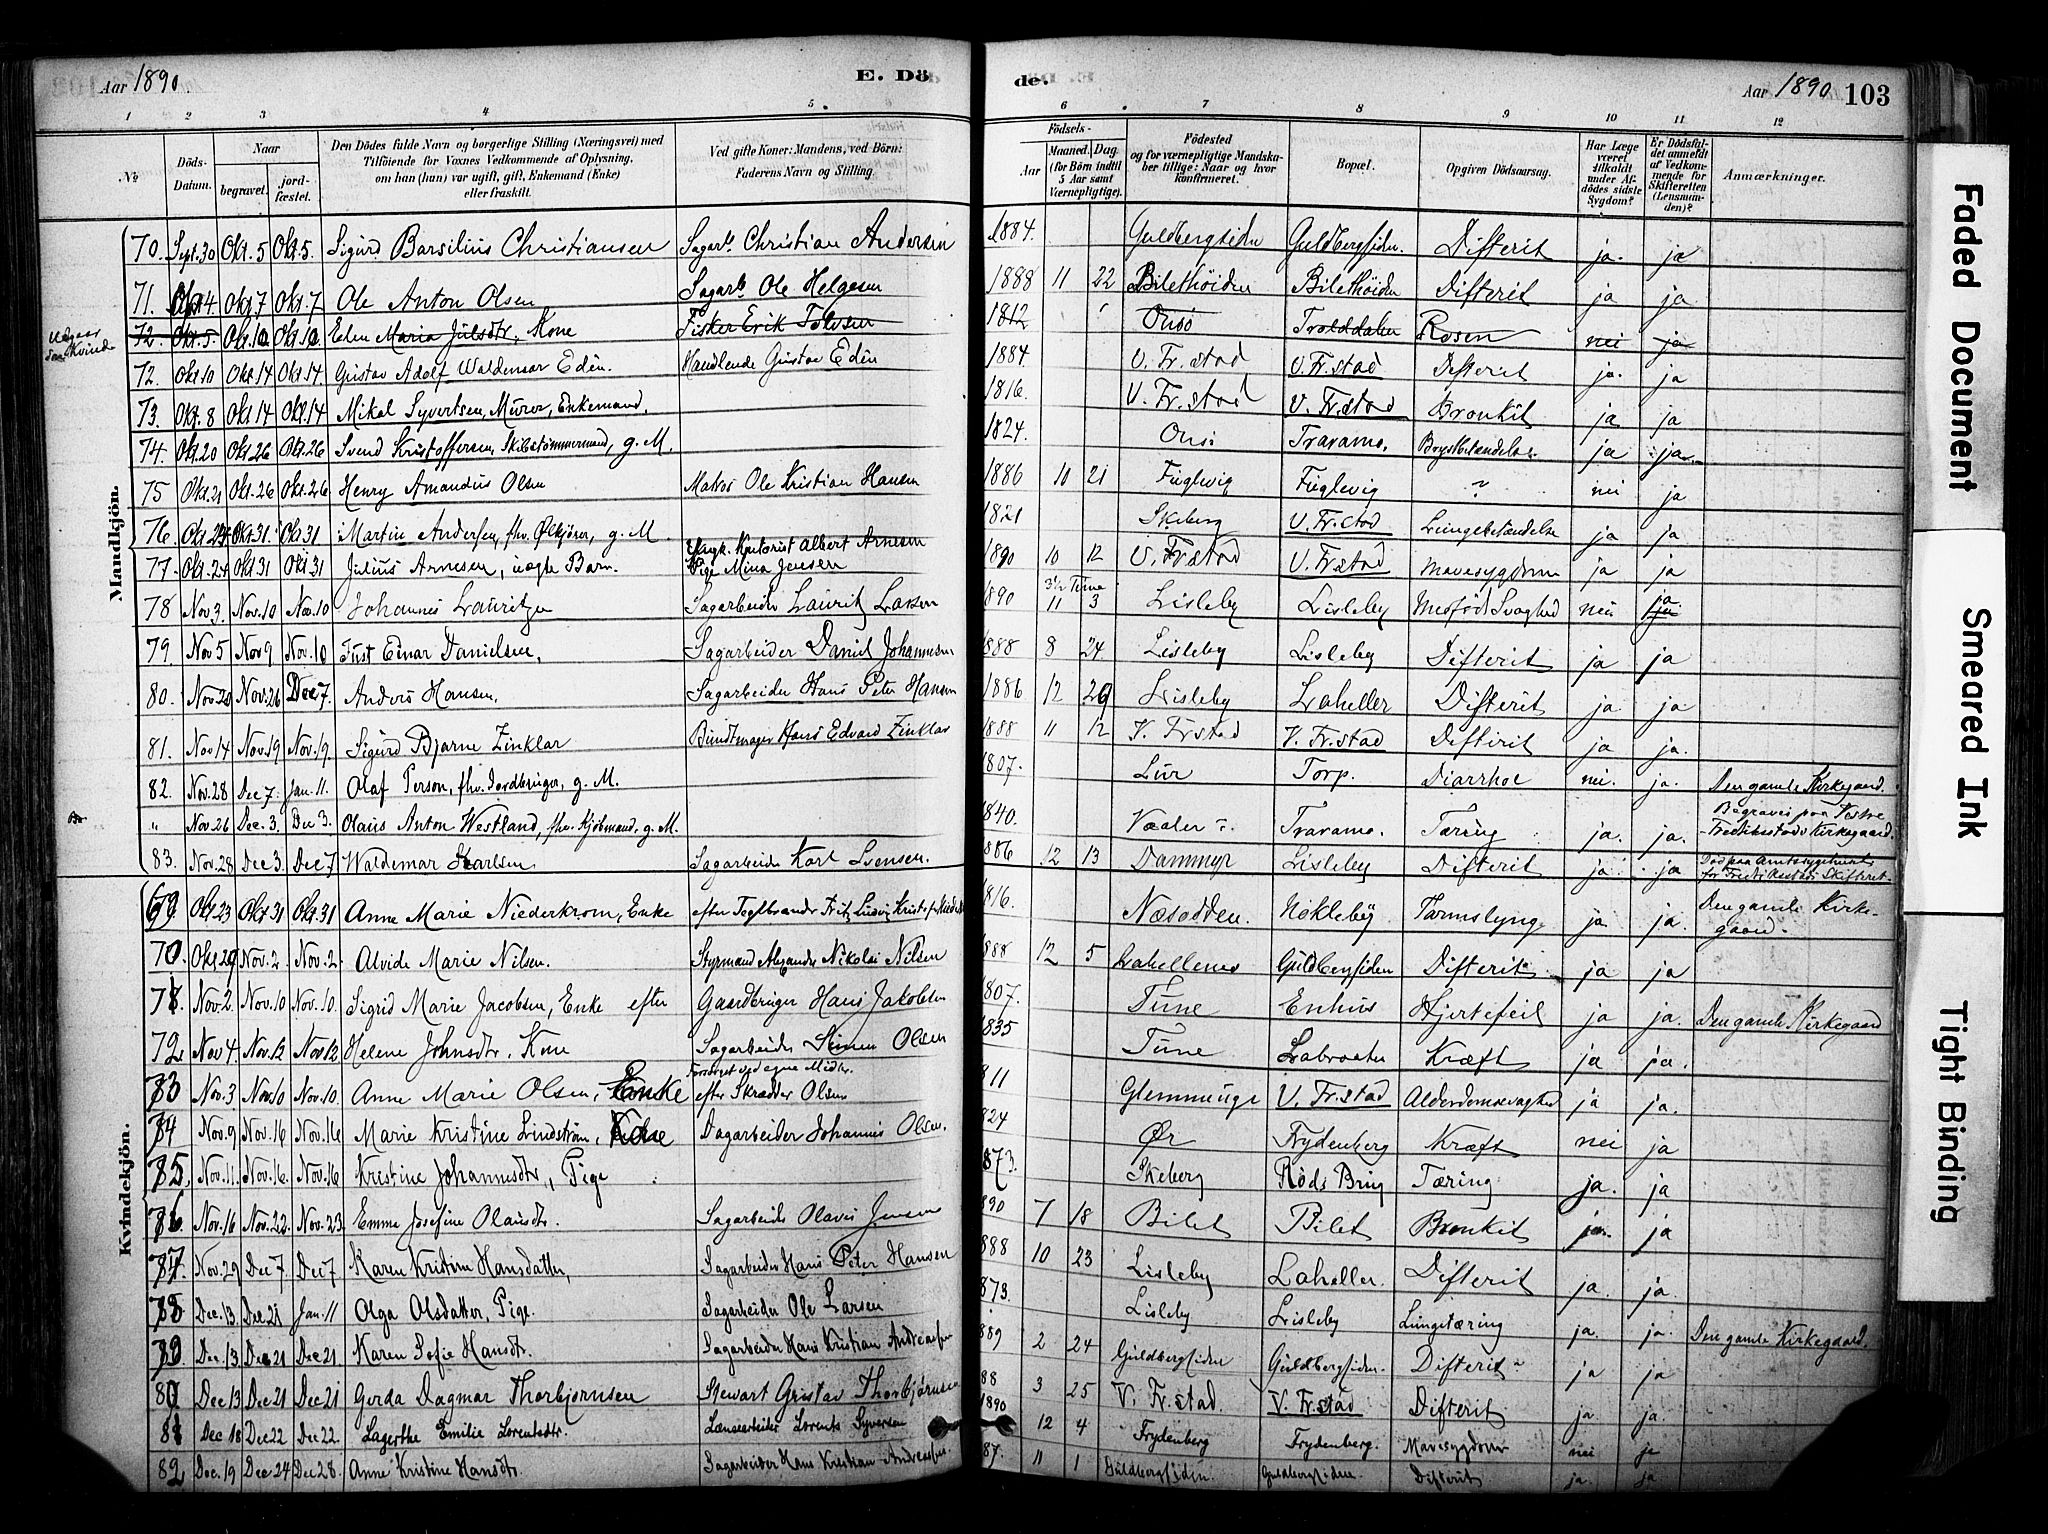 Aar 1890. E. Dö de. Aar 1890 103
1 2 3 4 5. 6 7 8 9 10 11 12
№ Döds-Datum. Naar begravet. jord-fæstet. Den Dödes fulde Navn og borgerlige Stilling (Næringsvei) med Tilföiende for Voxnes Vedkommende af Oplysning, om han (hun) var ugift, gift, Enkemand (Enke) eller fraskilt. Ved gifte Koner: Mandens, ved Börn: Faderens Navn og Stilling. Födsels- Aar Maaned. Dag. (for Börn indtil 5 Aar samt Værnepligtige). Födested og for værnepligtige Mandska-ber tillige: Naar og hvor konfirmeret. Bopæl. Opgiven Dödsaarsag. Har Læge været tilkaldt under Af-dödes sidste Sygdom? Er Dödsfal-det anmeldt af Vedkom-mende for Skifteretten (Lensman-den)? Anmærkninger.
Mandkjön.
70. Sept. 30 Okt. 5 Okt. 5. Sigurd Barsilius Christiansen Sagarb. Christian Andersen 1884. Guldbergsiden Guldbergsiden. Difterit ja. ja
71. Okt. 4 Okt. 7 Okt. 7 Ole Anton Olsen Sagarb. Ole Helgesen 1888 11 22 Bilethöiden Bilethöiden Difterit ja ja
72. Okt. 5. Okt. 10 Okt. 10 Elen Maria Julsdtr, Kone Fisker Erik Tolvsen 1812 Onsö Trolddalen Rosen nei ja
72. Okt. 10 Okt. 14 Okt. 14. Gustav Adolf Waldemar Edén. Handlende Gustav Edén 1884 V. Fr.stad V. Fr.stad Difterit ja. ja
73. Okt. 8 Okt. 14 Okt. 14 Mikal Syvertsen, Murer, Enkemand. 1816. V. Fr.stad V. Fr.stad Bronkit ja ja
74. Okt. 20 Okt. 26 Okt. 26 Svend Kristoffersen, Skibstömmermand, g. M. 1824. Onsö Traramo. Brystbetændelse. ja ja.
75 Okt. 21 Okt. 26 Okt. 26 Henry Amandus Olsen Matros Ole Kristian Hansen 1886 10 21 Fuglevig Fuglevig ? nei ja
76. Okt. 24 Okt. 31. Okt. 31 Martin Andersen, fhv. Ølkjörer, g. M. 1821 Skeberg V. Fr.stad Lungebetændelse ja ja
77. Okt. 24 Okt. 31 Okt. 31 Julius Arnesen, uægte Barn. Ungk. Kontorist Albert Arnesen Pige Mina Jensen 1890 10 12 V. Fr.stad V. Fr.stad Mavesygdom ja ja
78 Nov. 3. Nov. 10 Nov. 10 Johannes Lauritzen Sagarbeider Laurits Larsen 1890 3½ Time 11 3 Lisleby Lisleby Medfödt Svaghed nei ja
79. Nov 5 Nov 9 Nov. 10 Just Einar Danielsen, Sagarbeider Daniel Johannesen 1888 8 24 Lisleby Lisleby Difterit ja ja
80. Nov. 20 Nov. 26 Dec 7. Anders Hansen, Sagarbeider Hans Peter Hansen 1886 12 29 Lisleby Laheller Difterit ja ja
81. Nov 14 Nov. 19 Nov. 19. Sigurd Bjarne Zinklar Bundtmager Hans Edvard Zinklar 1888 11 12 V. Fr.stad V. Fr.stad Difterit ja ja.
82. Nov. 28 Dec 7. Jan. 11. Olaf Person, fhv. Jordbruger, g. M. 1807. Lur Torp. Diarrhoe nei. ja. Den gamle Kirkegaard.
" Nov. 26 Dec. 3. Dec 3. Olaus Anton Westland, fhv. Kjöbmand, g. M. 1840. Vaaler Traramo. Tæring ja. ja. Begraves paa Vestre Fredriksstads Kirkegaard.
83. Nov. 28 Dec 3 Dec 7 Waldemar Karlsen Sagarbeider Karl Svensen. 1886 12 13 Dammyr Lisleby Difterit ja ja Död paa Amtssygehuset for Fredriksstad Skifteret.
Kvindekjön.
69 Okt. 23 Okt 31 Okt. 31 Anne Marie Niederkrom, Enke efter Teglbrænder Fritz Ludvig 1816. Næsodden. Nökleby Tarmslyng ja. ja. Den gamle Kirkegaard.
70. Okt. 29 Nov. 2. Nov. 2. Alvide Marie Nilsen. Styrmand Alexander Nikolai Nilsen 1888 12 5 Lahellene Guldbergsiden Difterit ja ja
71. Nov. 2. Nov. 10 Nov. 10. Sigrid Marie Jacobsen, Enke efter Gaardbruger Hans Jakobsen 1807. Tune Enhus Hjertefeil ja ja. Den gamle Kirkegaard
72 Nov 4. Nov. 12 Nov. 12 Helene Johnsdtr. Kone Sagarbeider Simen Olsen 1835 Tune Labraaten Kræft ja ja.
73 Nov. 3 Nov. 10 Nov. 10. Anne Marie Olsen, Enke Forsörget ved egne Midler. efter Skrædder Olsen 1811 Glemminge V. Fr.stad Alderdomssvaghed ja ja.
74 Nov. 9 Nov. 16 Nov. 16 Marie Kristine Lindström, Kone Dagarbeider Johannes Olsen. 1824 Ør Frydenberg Kræft nei ja
75. Nov. 11. Nov. 16. Nov. 16 Kristine Johannesdtr., Pige 1873. Skeberg Röds Brug Tæring. ja. ja
76 Nov. 16 Nov. 22. Nov. 23. Emma Josefine Olausdtr. Sagarbeider Olaves Jensen 1890 7 18 Bilet Bilet Bronkit ja. ja
77. Nov. 29 Dec 7. Dec 7 Karen Kristine Hansdatter, Sagarbeider Hans Peter Hansen 1888 10 23 Lisleby Laheller. Difterit ja. ja.
78 Dec. 13. Dec 21 Jan. 11 Olga Olsdatter, Pige. Sagarbeider Ole Larsen 1873. Lisleby Lisleby Lungetæring ja. ja. Den gamle Kirkegaard.
79 Dec. 13 Dec 21 Dec 21. Karen Sofie Hansdtr. Sagarbeider Hans Kristian Andreassen 1889 2 24 Guldbergsiden Guldbergsiden. Difterit ja ja
80 Dec 13 Dec 21 Dec 21 Gerda Dagmar Thorbjørnsen Stewart Gustav Thorbjørnsen 88 3 25 V. Fr.stad. V. Fr.stad Difterit ja. ja.
81 Dec 18 Dec 22 Dec 22. Lagerthe Emilie Lorentsdtr. Lænsearbeider Lorents Syversen 1890 12 4 Frydenberg Frydenberg. Mavesygdom nei ja
82 Dec. 19 Dec 24 Dec 28. Anne Kristine Hansdtr. Sagarbeider Hans Kristian Andreassen 87. 11 1 Guldbergsiden. Guldbergsiden Difterit ja. ja
Faded Document
Smeared Ink
Tight Binding